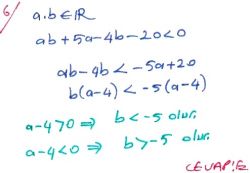 6/ a.b∈ℝ
ab+5a-4b-20<0
ab-4b<-5a+20
b(a-4)<-5(a-4)
a-4>0 ⇒ b<-5 olur.
a-4<0 ⇒ b>-5 olur.
CEVAP:E